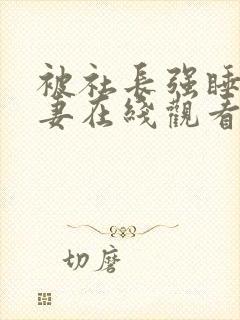 被社長强睡
妻在綫觀看
切磨